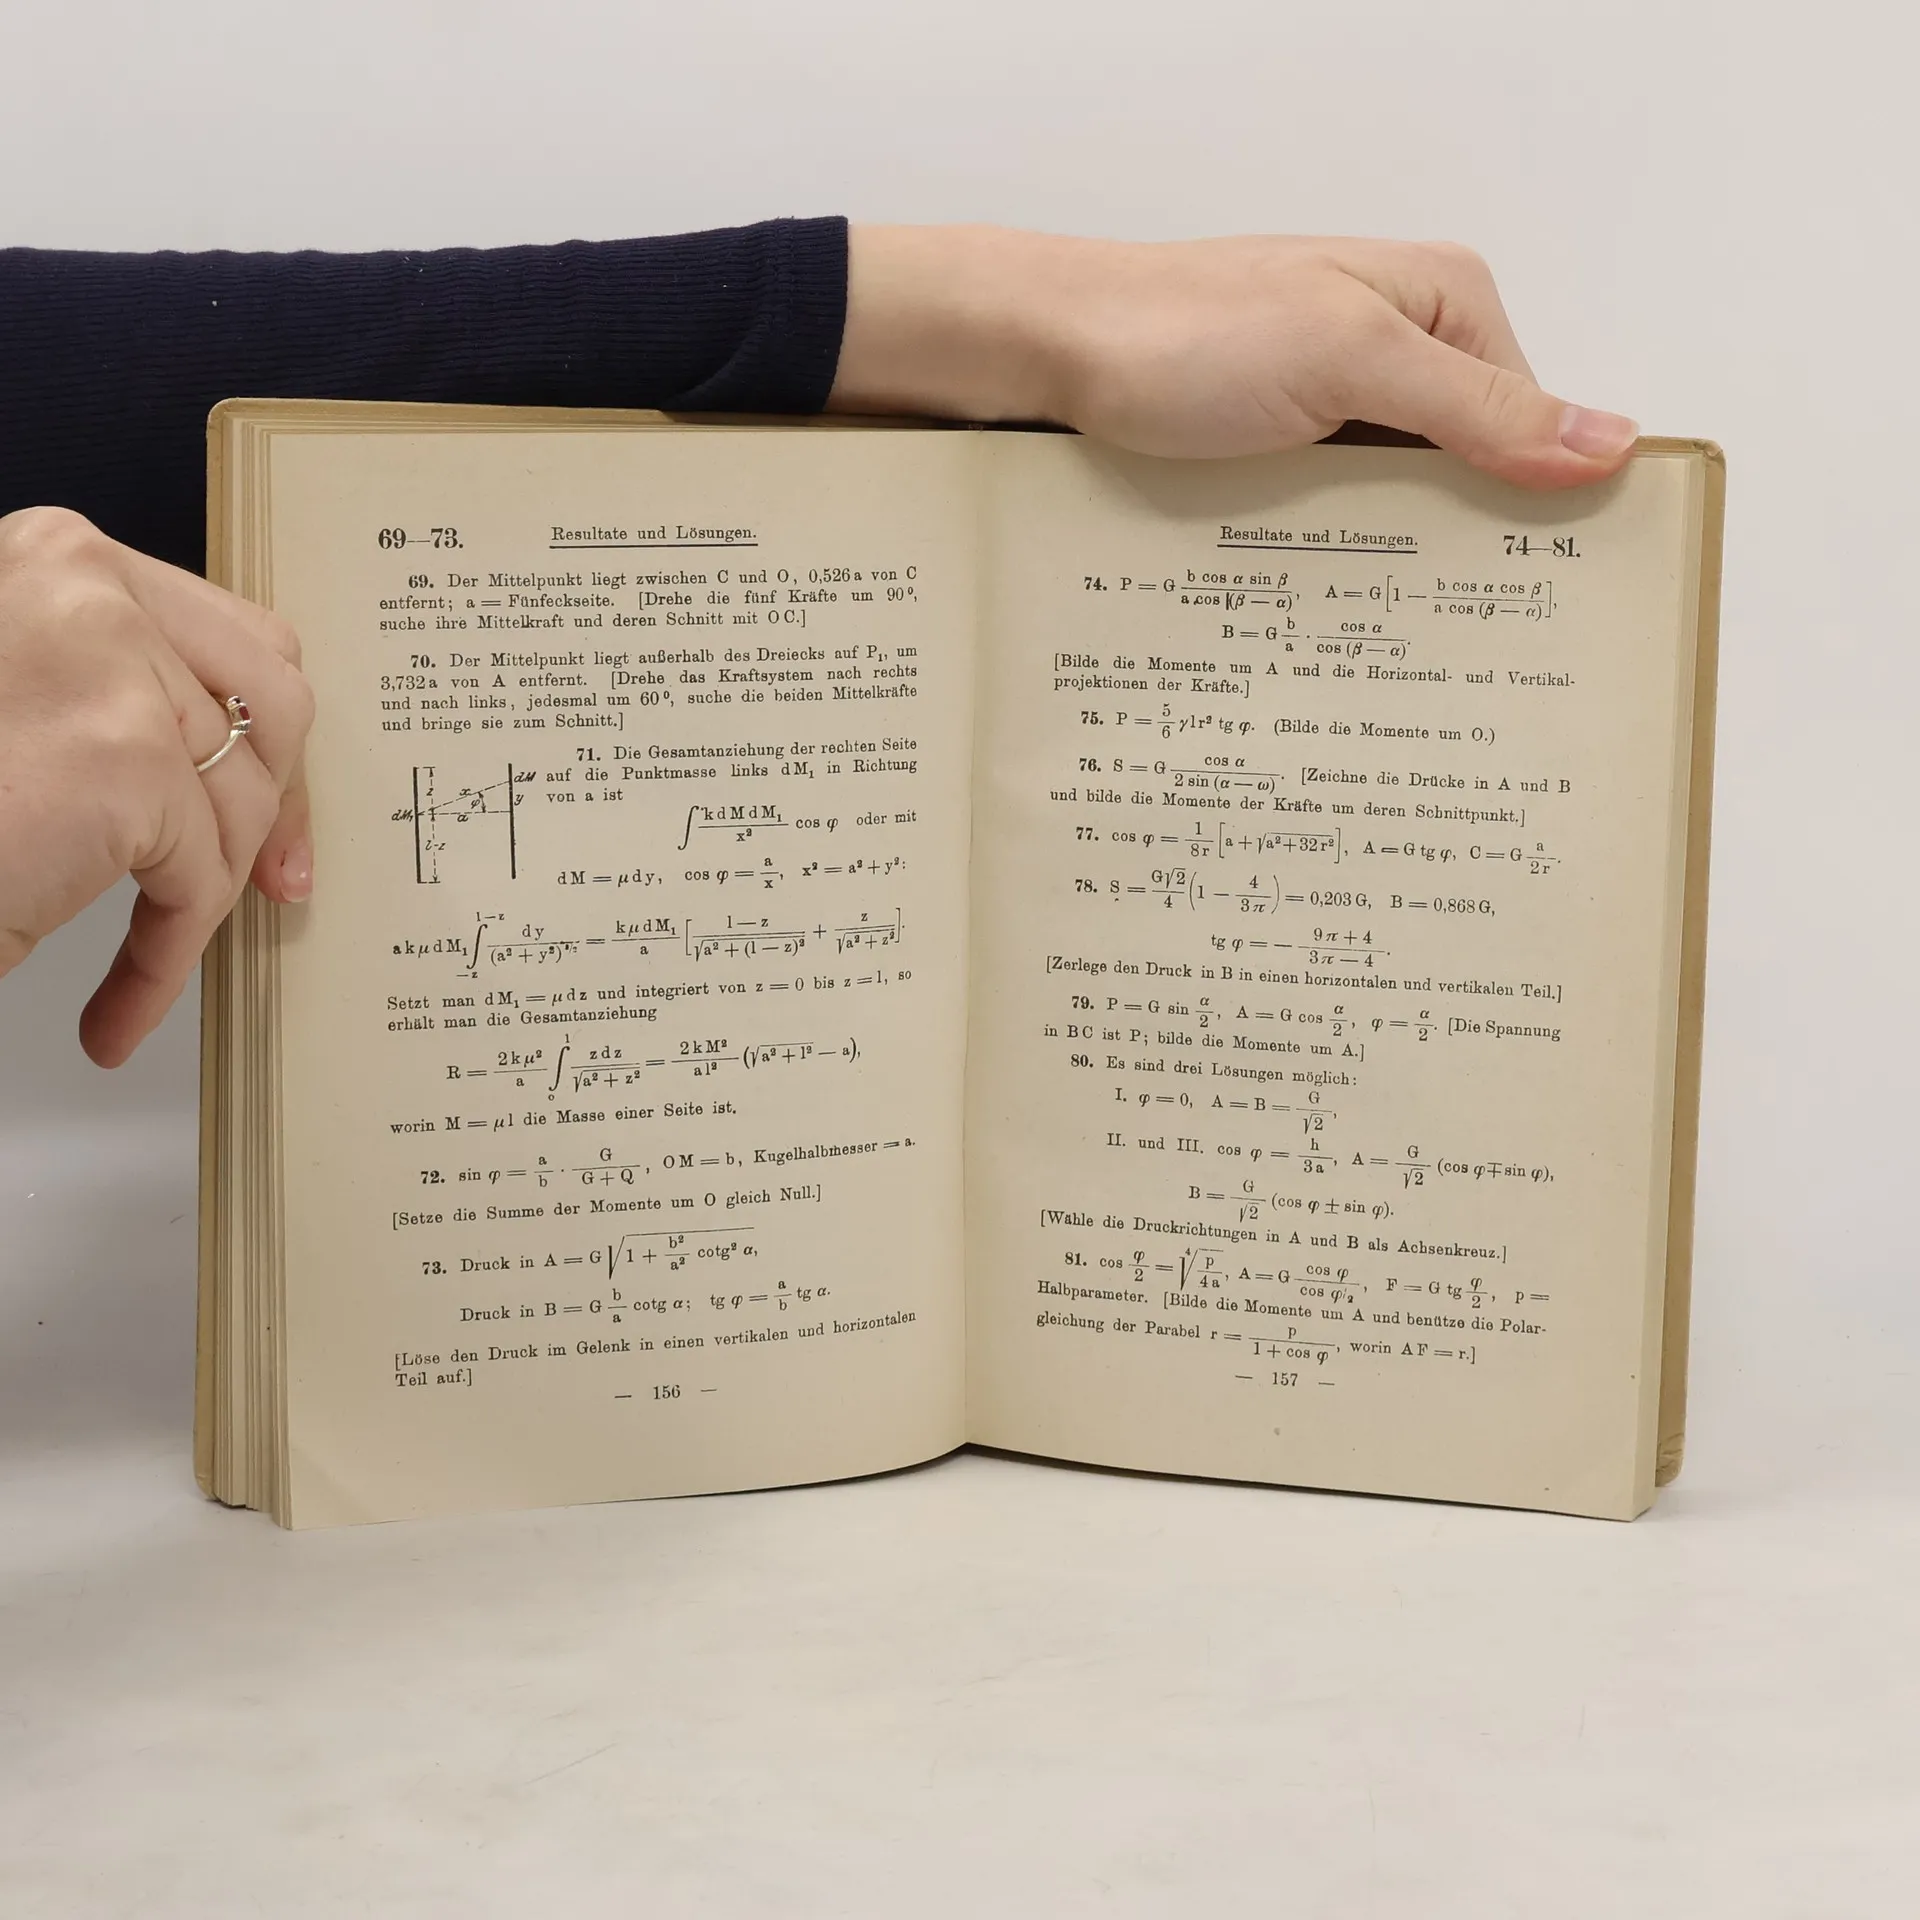 69—73.
Resultate und Lösungen.
69. Der Mittelpunkt liegt zwischen C und O, 0,526 a von C
entfernt; a = Fünfeckseite. [Drehe die fünf Kräfte um 90°,
suche ihre Mittelkraft und deren Schnitt mit O C.]
70. Der Mittelpunkt liegt außerhalb des Dreiecks auf P₁, um
3,732 a von A entfernt. [Drehe das Kraftsystem nach rechts
und nach links, jedesmal um 60°, suche die beiden Mittelkräfte
und bringe sie zum Schnitt.]
71. Die Gesamtanziehung der rechten Seite
auf die Punktmasse links dM₁ in Richtung
von a ist
dM₁ z x φ a l-z dM y
∫ k dM dM₁ / x² cos φ oder mit
dM = μ dy, cos φ = a/x, x² = a² + y²:
a k μ dM₁ ∫_{−z}^{l−z} dy / (a² + y²)^{3/2} = k μ dM₁ / a [ (l − z) / √(a² + (l − z)²) + z / √(a² + z²) ].
Setzt man dM₁ = μ dz und integriert von z = 0 bis z = l, so
erhält man die Gesamtanziehung
R = 2 k μ² / a ∫₀^l z dz / √(a² + z²) = 2 k M² / a l² (√(a² + l²) − a),
worin M = μ l die Masse einer Seite ist.
72. sin φ = a/b · G / (G + Q), OM = b, Kugelhalbmesser = a.
[Setze die Summe der Momente um O gleich Null.]
73. Druck in A = G √(1 + b²/a² cotg² α),
Druck in B = G b/a cotg α; tg φ = a/b tg α.
[Löse den Druck im Gelenk in einen vertikalen und horizontalen
Teil auf.]
— 156 —
Resultate und Lösungen.
74—81.
74. P = G b cos α sin β / a cos (β − α), A = G [1 − b cos α cos β / a cos (β − α)],
B = G b/a · cos α / cos (β − α).
[Bilde die Momente um A und die Horizontal- und Vertikal-
projektionen der Kräfte.]
75. P = 5/6 γ l r² tg φ. (Bilde die Momente um O.)
76. S = G cos α / 2 sin (α − ω). [Zeichne die Drücke in A und B
und bilde die Momente der Kräfte um deren Schnittpunkt.]
77. cos φ = 1/8r [a + √(a² + 32 r²)], A = G tg φ, C = G a/2r.
78. S = G√2/4 (1 − 4/3π) = 0,203 G, B = 0,868 G,
tg φ = − (9π + 4) / (3π − 4).
[Zerlege den Druck in B in einen horizontalen und vertikalen Teil.]
79. P = G sin α/2, A = G cos α/2, φ = α/2. [Die Spannung
in BC ist P; bilde die Momente um A.]
80. Es sind drei Lösungen möglich:
I. φ = 0, A = B = G/√2,
II. und III. cos φ = h/3a, A = G/√2 (cos φ ∓ sin φ),
B = G/√2 (cos φ ± sin φ).
[Wähle die Druckrichtungen in A und B als Achsenkreuz.]
81. cos φ/2 = ⁴√(p/4a), A = G cos φ / cos φ/2, F = G tg φ/2, p =
Halbparameter. [Bilde die Momente um A und benütze die Polar-
gleichung der Parabel r = p / (1 + cos φ), worin AF = r.]
— 157 —